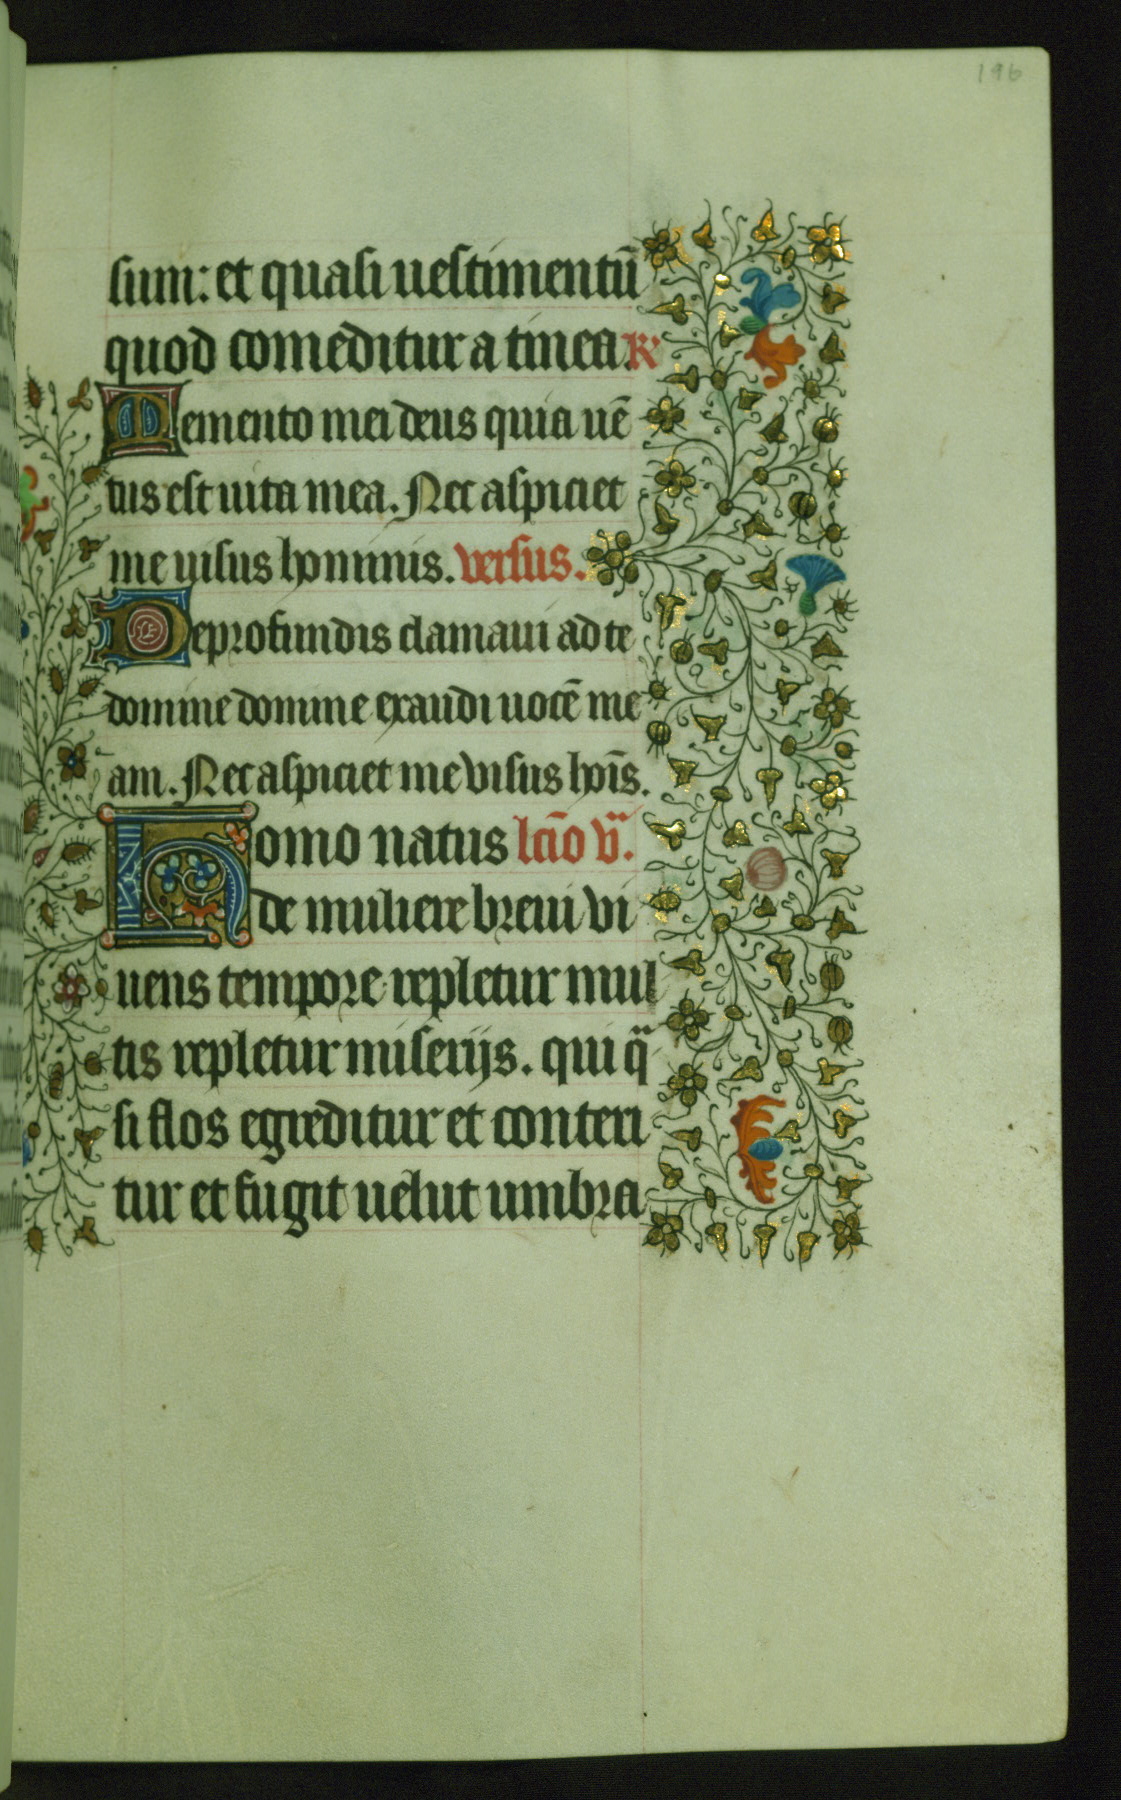 196
sum: et quasi uestimentū
quod comeditur a tinea R
Memento mei deus quia uē
tus est uita mea. Nec aspiciet
me uisus hominis. versus.
De profundis clamaui ad te
domine domine exaudi uocē me
am. Nec aspiciet me visus hoīs.
Homo natus lcīo v.
de muliere breui vi
uens tempore repletur mul
tis repletur miserijs. qui q̄
si flos egreditur et conteri
tur et fugit uelut umbra